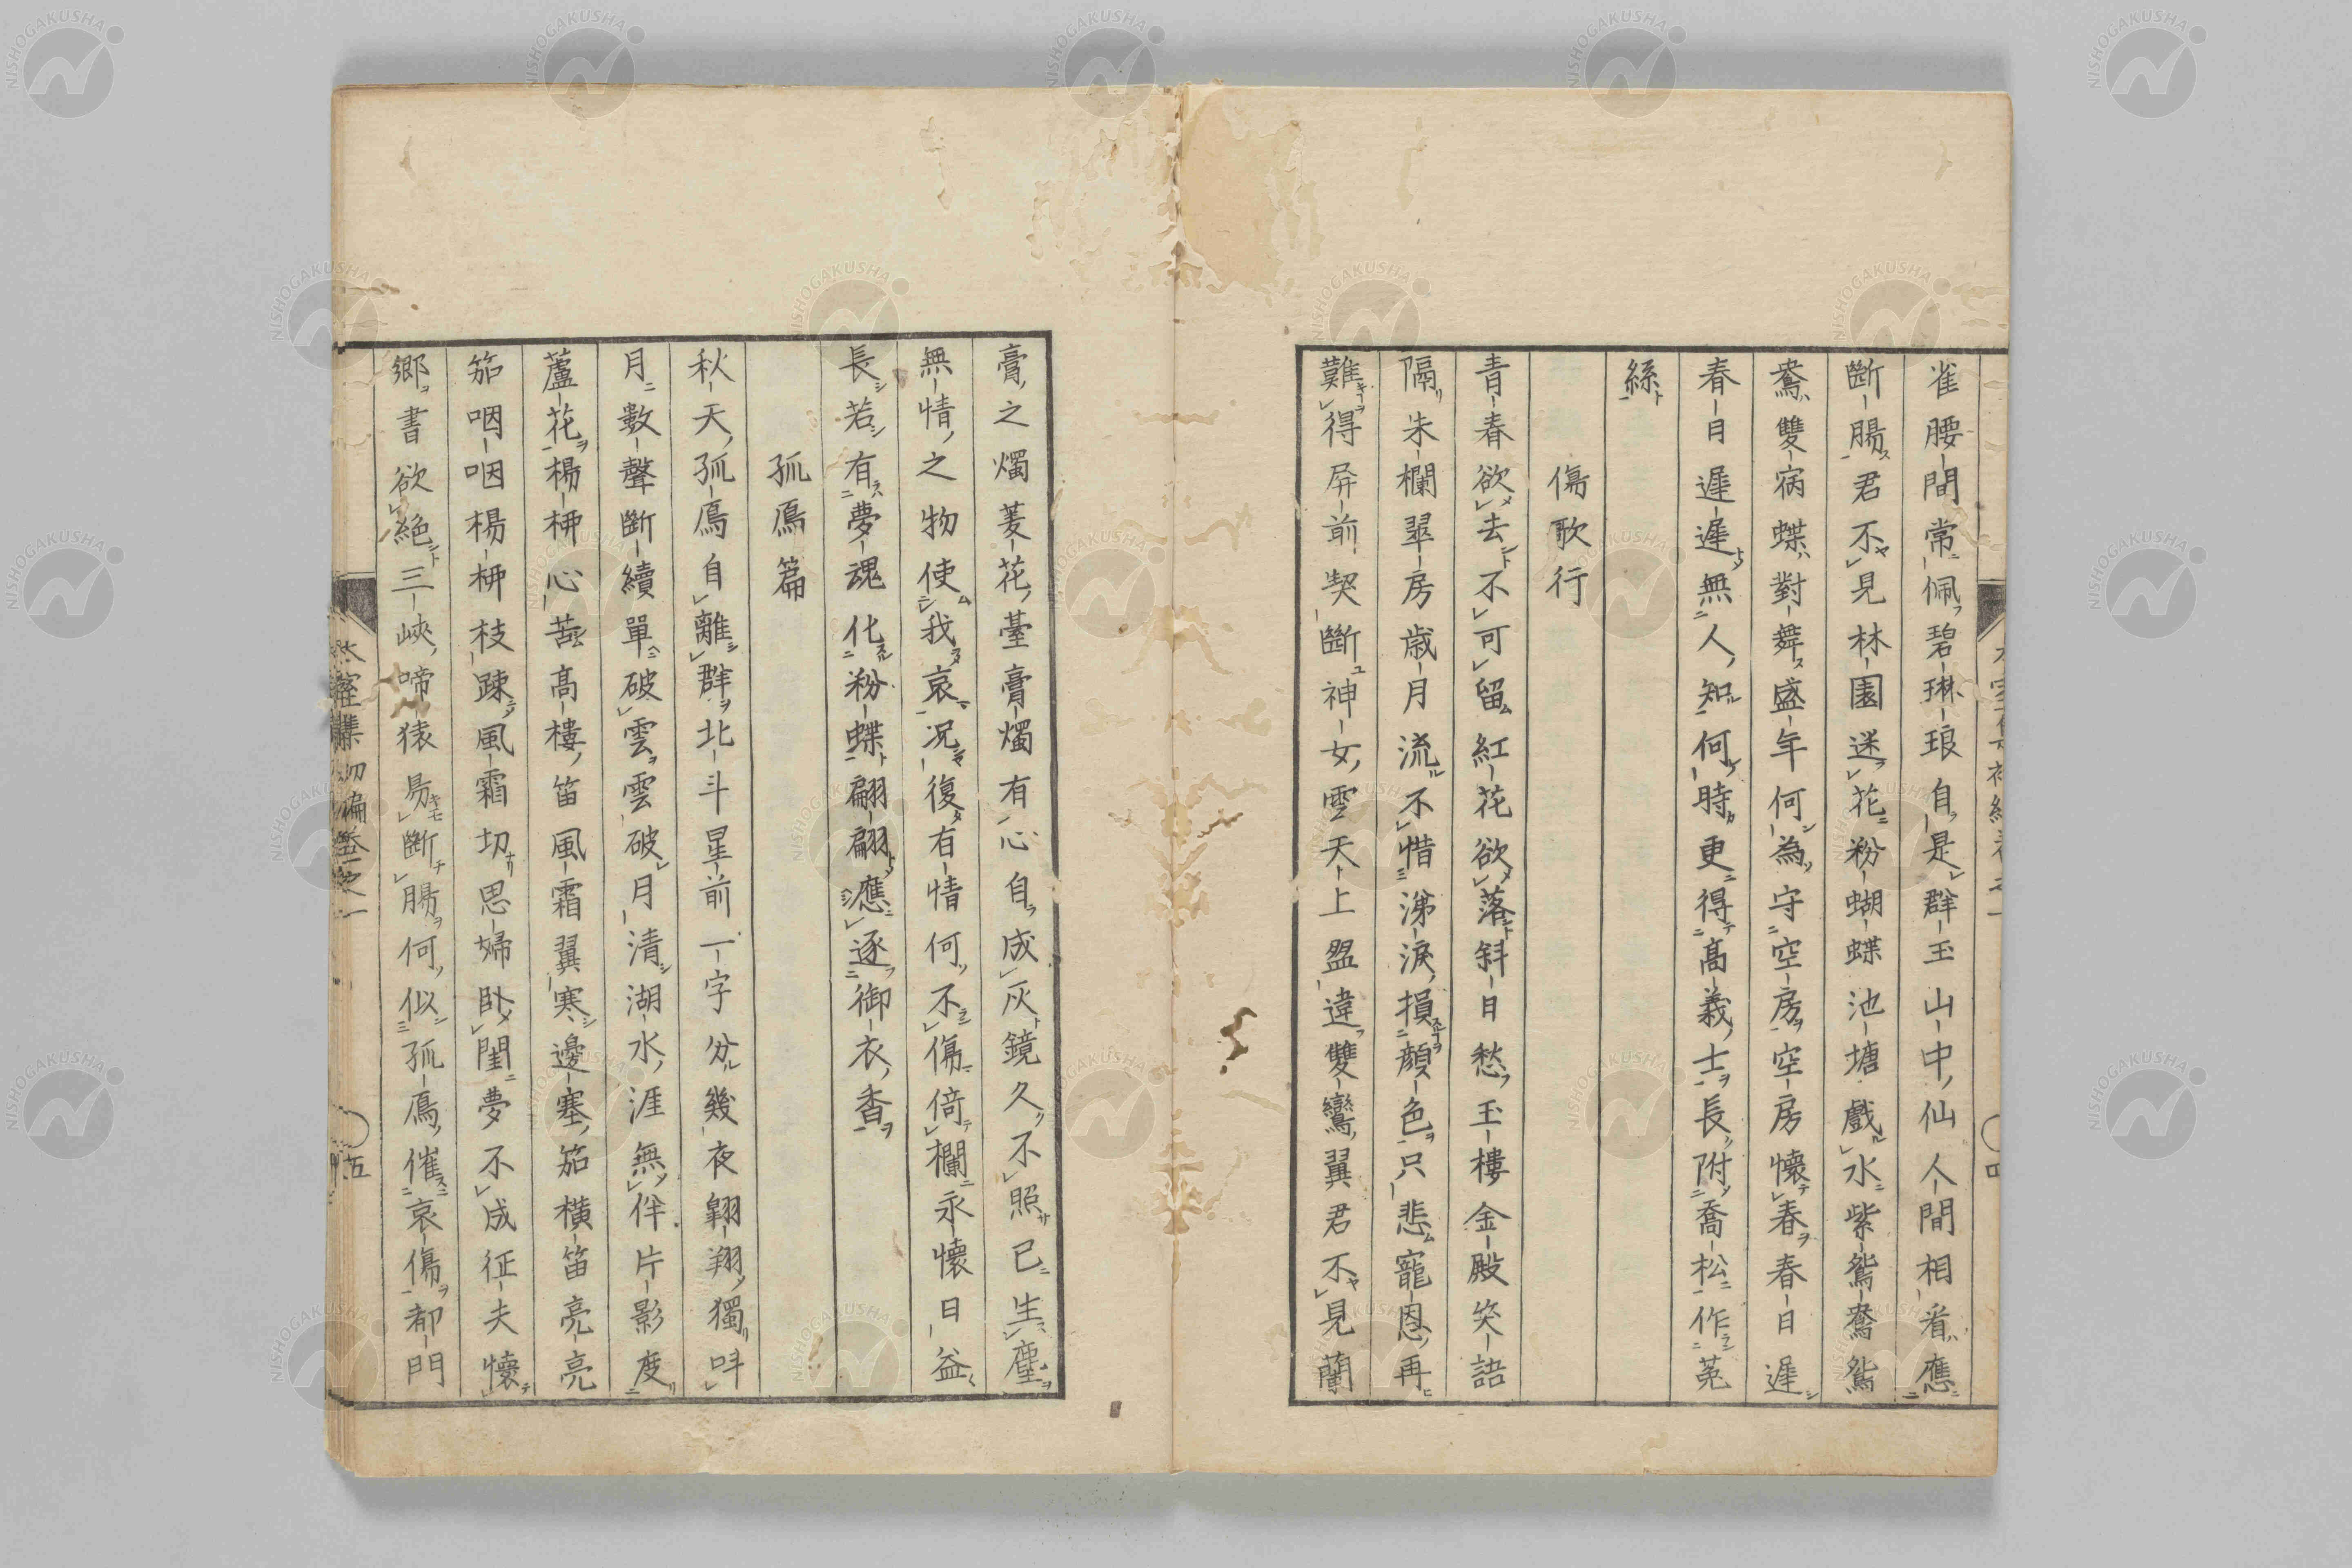 雀腰間常佩碧琳琅自是群玉山中仙人間相看應
斷腸君不見林園迷花粉蝴蝶池塘戲水紫鴛鴦鴛
鴦雙宿蝶對舞盛年何為守空房空房懷春春日遲
春日遲遲無人知何時更得高義士長附喬松作菟
絲
傷歌行
青春欲去不可留紅花欲落斜日愁玉樓金殿笑語
隔朱欄翠房歲月流不惜涕淚損顏色只悲寵恩再
難得屏前契斷神女雲天上盟違雙鸞翼君不見蘭
膏之燭菱花臺膏燭有心自成灰鏡久不照已生塵
無情之物使我哀況復有情何不傷倚欄永懷日益
長若有夢魂化粉蝶翩翩應逐御衣香
孤鴈篇
秋天孤鴈自離群北斗星前一字分幾夜翱翔獨叫
月數聲斷續單破雲雲破月清湖水涯無伴片影度
蘆花楊柳心苦高樓笛風霜翼寒邊塞笳橫笛亮亮
笳咽咽楊柳枝疎風霜切思婦臥閨夢不成征夫懷
鄉書欲絕三峽啼猿易斷腸何似孤鴈催哀傷都門
初編卷之一
五